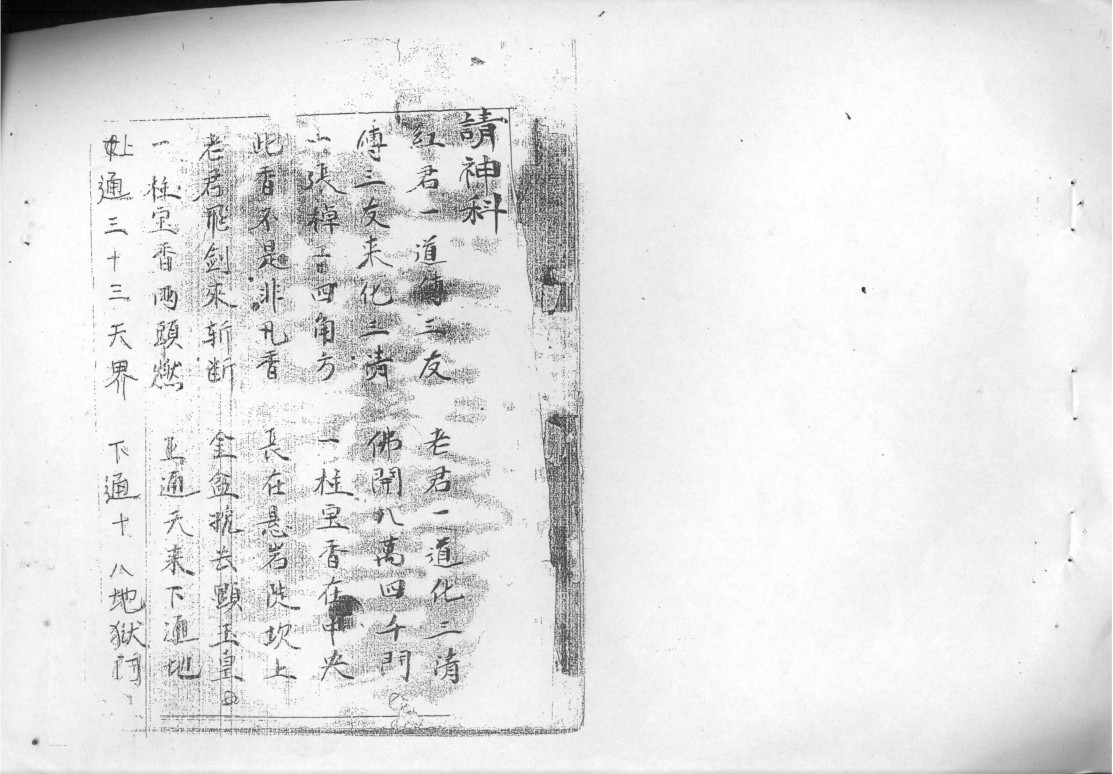 請神科
红君一道傳三友 老君一道化三清
傅三友来化三清 佛開八萬四千門
一張棹言四角方 一柱宝香在中央
此香不是非凡香 長在悬岩陡坎上
老君飛剑來斩断 金盆抗去顕玉皇
一柱宝香两頭燃 上通天来下通地
上通三十三天界 下通十八地獄門